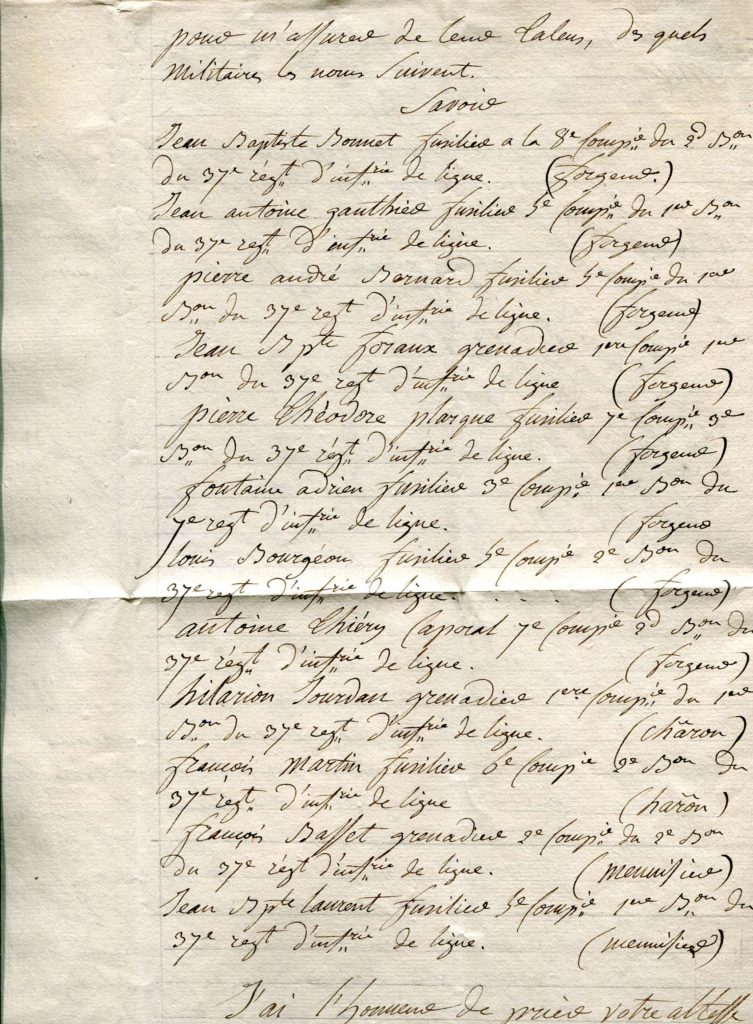 pour m'assurer de leur talens, des quels
militaires les noms suivent.
Savoir
Jean Baptiste Bonnet fusilier a la 8e Compie du 2d Bon
du 37e régt d'infrie de ligne. (forgeur.)
Jean antoine gauthier fusilier 5e Compie du 1er Bon
du 37e regt d'infrie de ligne. (forgeur)
pierre andré Bernard fusilier 5e Compie du 1er
Bon du 37e regt d'infrie de ligne. (forgeur)
Jean Bpte foraux grenadier 1ere Compie 1er
Bon du 37e regt d'infrie de ligne (forgeur)
pierre théodore plarque fusilier 7e Compie 3e
Bon du 37e régt d'infrie de ligne. (forgeur)
fontaine adrien fusilier 3e Compie 1er Bon du
7e regt d'infrie de ligne. (forgeur
louis Bourgeon fusilier 5e Compie 2e Bon du
37e regt d'infrie de ligne. . . . . (forgeur)
antoine thiéry Caporal 7e Compie 2d Bon du
37e régt d'infrie de ligne. (forgeur)
hilarion Jourdan grenadier 1ere Compie du 1er
Bon du 37e regt d'infrie de ligne. (châron)
françois martin fusilier 6e Compie 2e Bon du
37e régt d'infrie de ligne (charôn)
françois Basset grenadier 2e Compie du 2e Bon
du 37e régt d'infrie de ligne. (menuisier)
Jean Bpte laurent fusilier 5e Compie 1er Bon du
37e regt d'infrie de ligne. (menuisier)
J'ai l'honneur de prier votre altesse